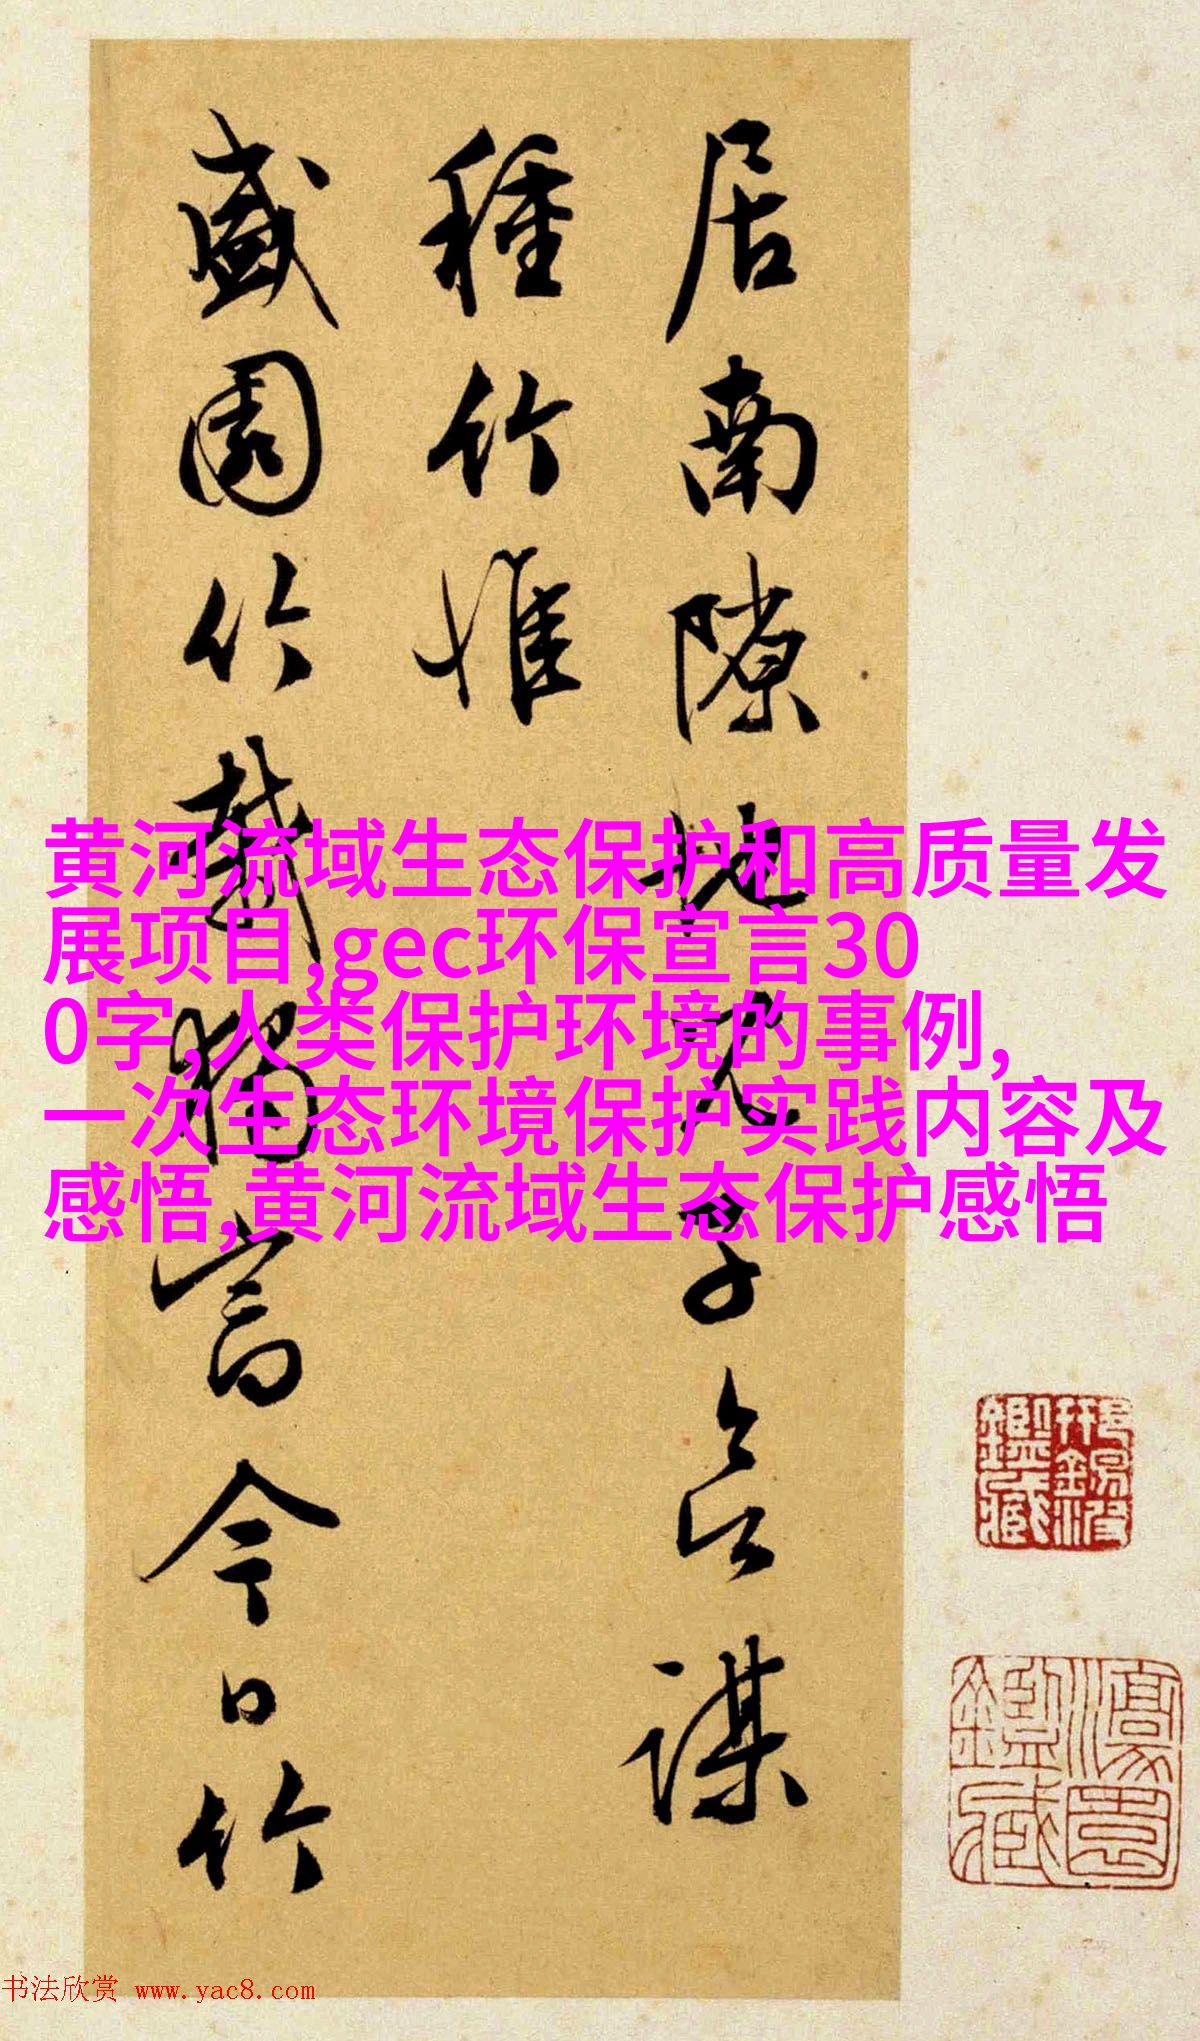 居南隙地兄子会谋
種竹惟
盛園竹
言今日竹
黄河流域生态保护和高质量发
展项目,gec环保宣言30
0字,人类保护环境的事例,
一次生态环境保护实践内容及
感悟,黄河流域生态保护感悟
书法欣赏 www.yac8.com